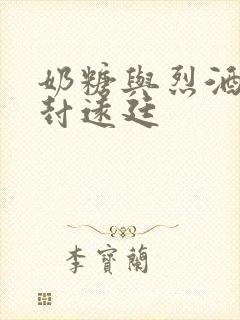 奶糖與烈酒
封遠廷
李寶蘭